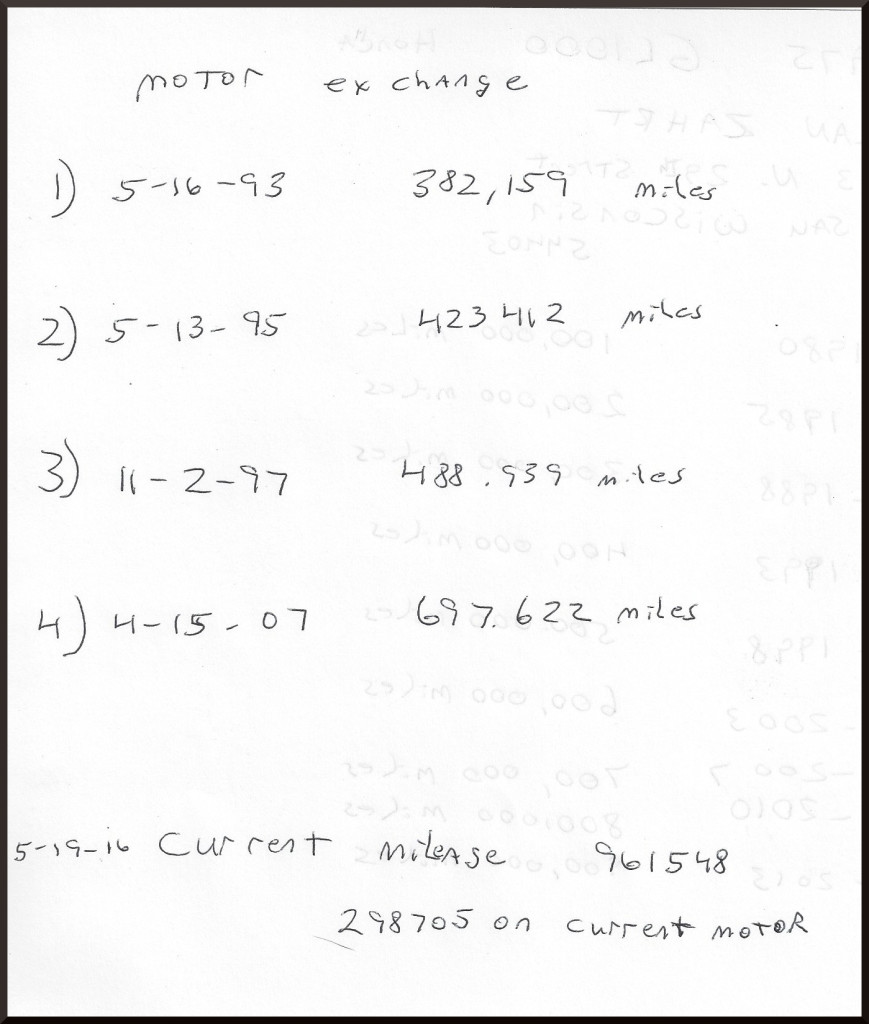 MOTOR exchange
1) 5-16-93 382,159 miles
2) 5-13-95 423412 miles
3) 11-2-97 488.939 miles
4) 4-15-07 697.622 miles
5-19-16 Current MileAge 961548
298705 on current MOTOR